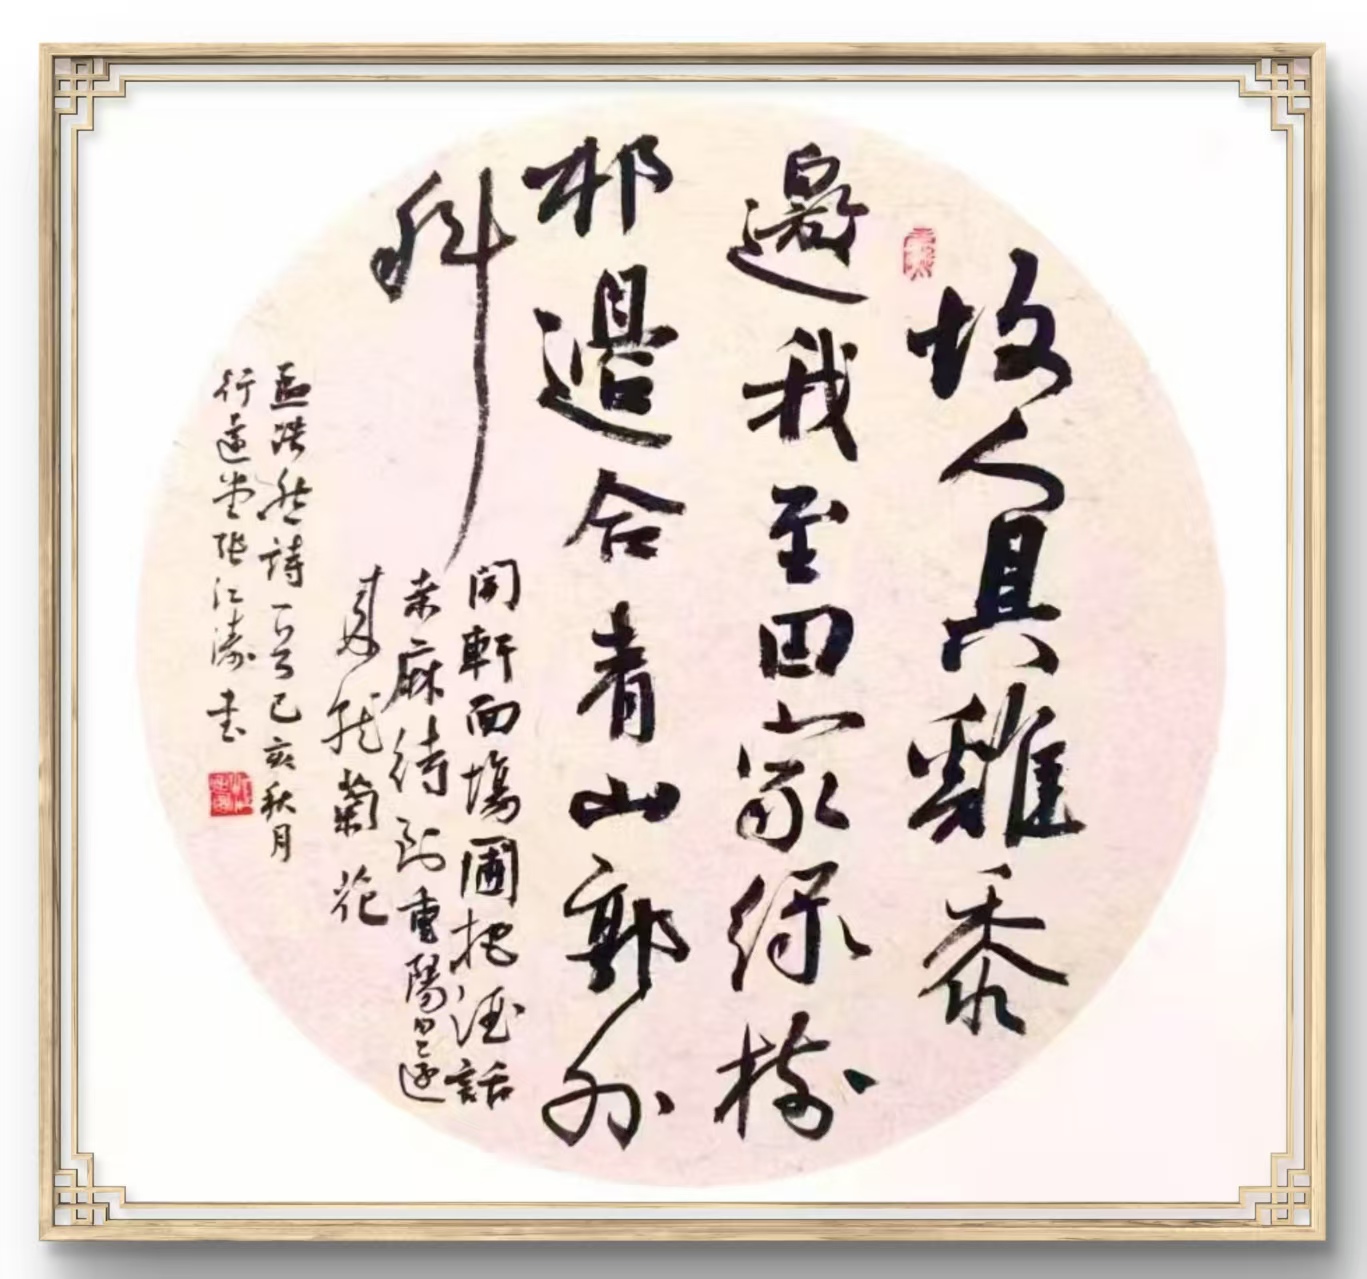 故人具雞黍
邀我至田家綠樹
邨邊合青山郭外
斜
開軒面場圃把酒話
桑麻待到重陽日還
來就菊花
孟浩然詩一首己亥秋月
行遠堂張江濤書